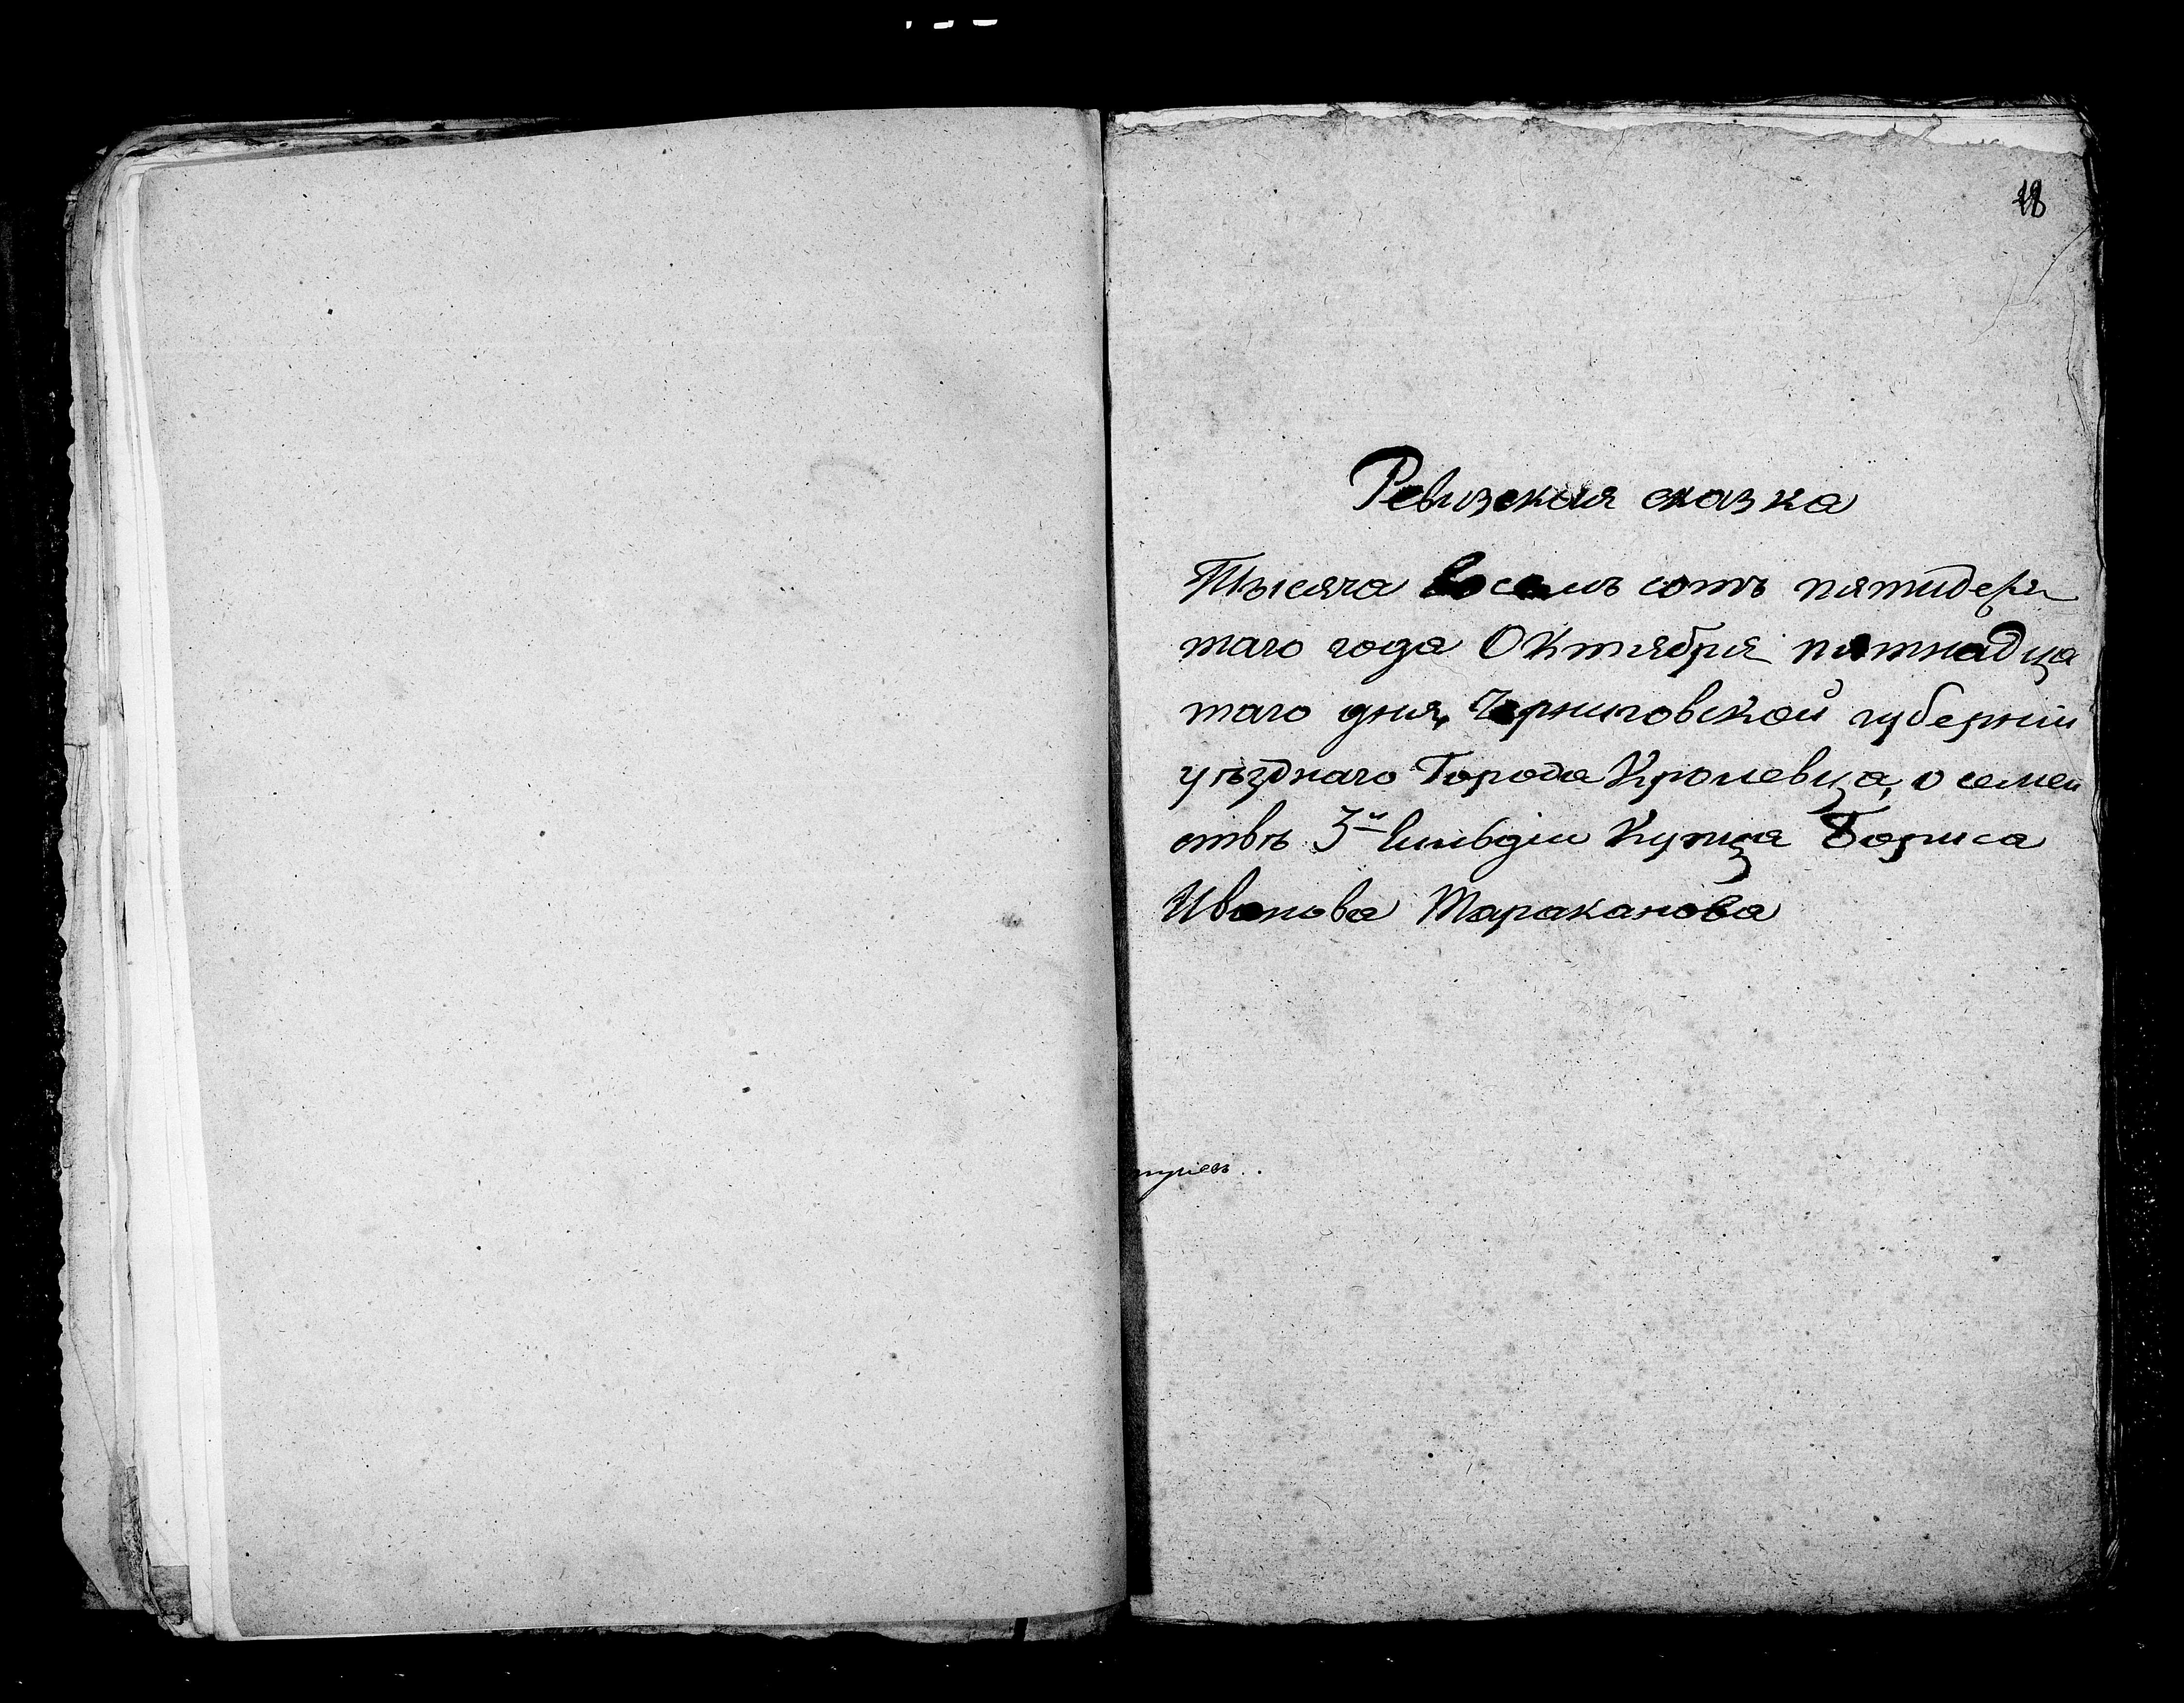 18
Ревизская сказка
Тысяча восемь сотъ пятидеся
таго года Октября пятнадца
таго дня, Черниговской губерніи
уѣзднаго Города Кролевца, о семей
ствѣ 3й Гильдіи Купца Бориса
Иванова Тараканова